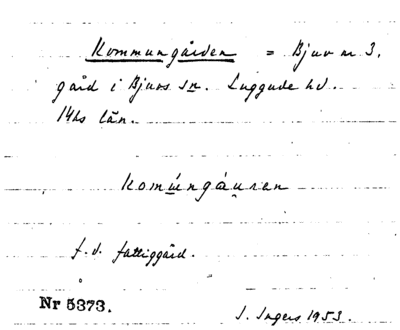 Kommungården = Bjuv nr 3.
gård i Bjuvs sn. Luggude hd.
Mhs län.
komúngáuren
f.d. fattiggård.
Nr 5373.
I. Ingers 1953.